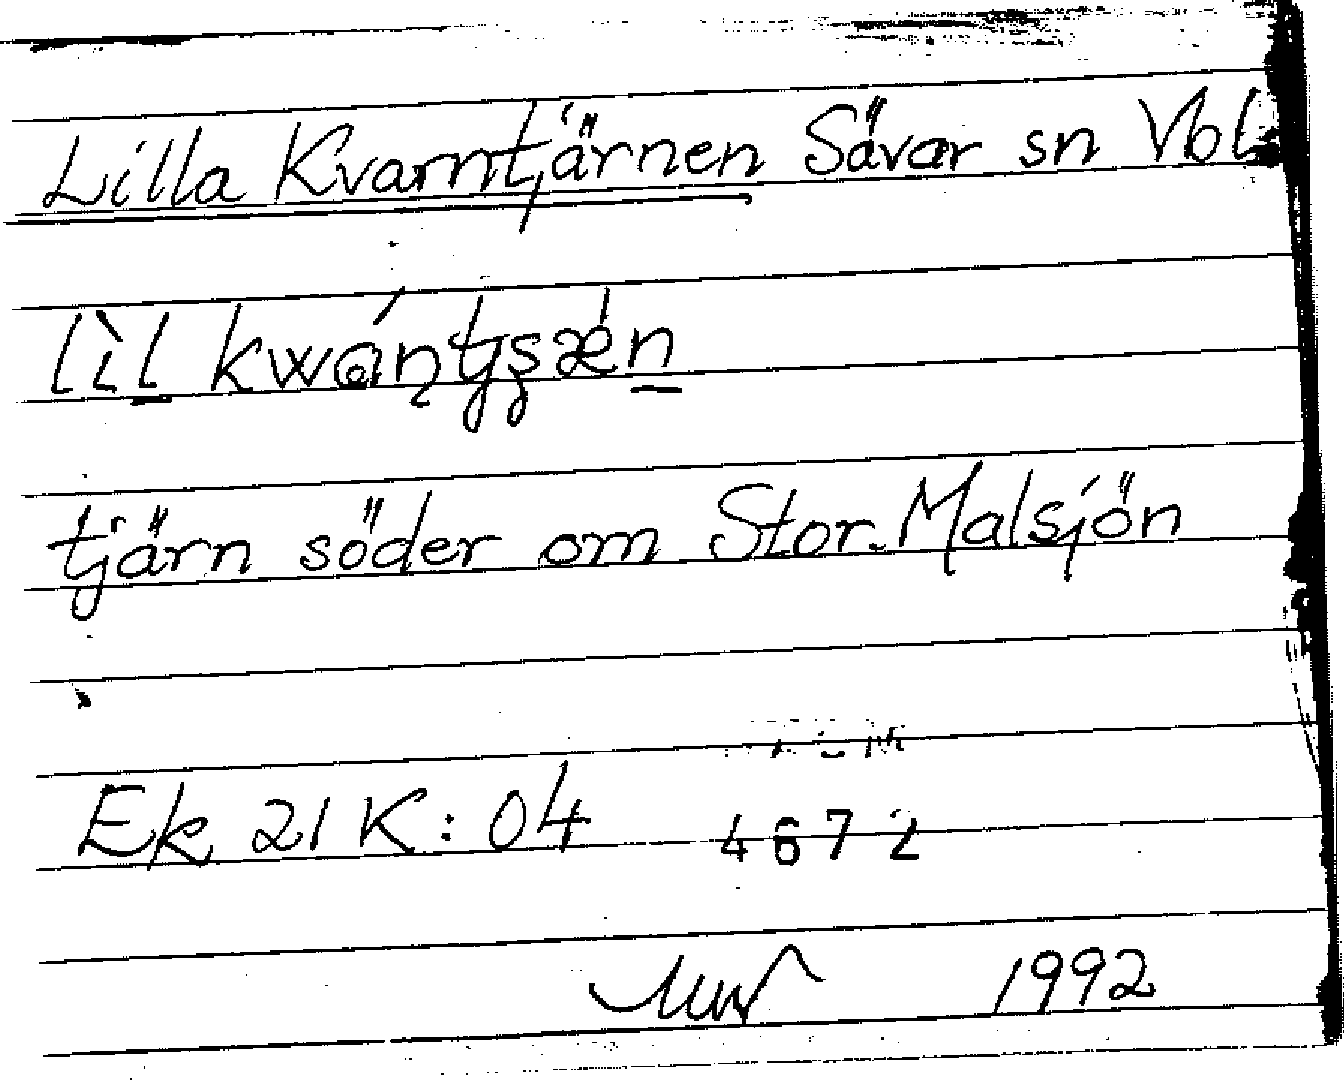 Lilla Kvarntjärnen Sävar sn Vbl
lìl kwáɳtjʂæ̍n
tjärn söder om Stor-Malsjön
Ek 21 K: 04 4672
1992